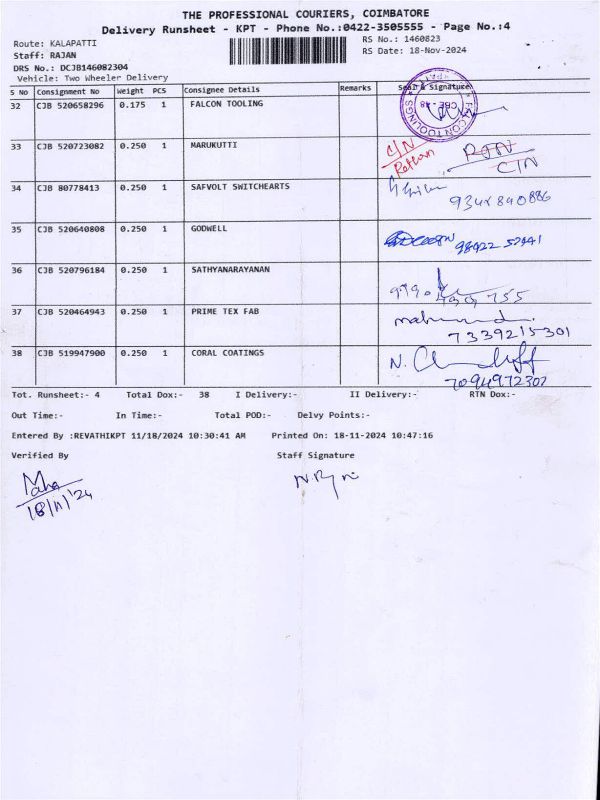 THE PROFESSIONAL COURIERS, COIMBATORE
Delivery Runsheet - KPT - Phone No.:0422-3505555 - Page No.:4
Route: KALAPATTI
RS No.: 1460823
Staff: RAJAN
RS Date: 18-Nov-2024
DRS No.: DCJB146082304
Vehicle: Two Wheeler Delivery
S No Consignment No Weight PCS Consignee Details Remarks Seal & Signature
32 CJB 520658296 0.175 1 FALCON TOOLING
FALCON TOOLINGS CBE - 48
33 CJB 520723082 0.250 1 MARUKUTTI C/N RTN
C/N
34 CJB 80778413 0.250 1 SAFVOLT SWITCHEARTS
35 CJB 520640808 0.250 1 GODWELL
36 CJB 520796184 0.250 1 SATHYANARAYANAN
37 CJB 520464943 0.250 1 PRIME TEX FAB
7339215301
38 CJB 519947900 0.250 1 CORAL COATINGS
7094972307
Tot. Runsheet:- 4 Total Dox:- 38 I Delivery:- II Delivery:- RTN Dox:-
Out Time:- In Time:- Total POD:- Delvy Points:-
Entered By :REVATHIKPT 11/18/2024 10:30:41 AM Printed On: 18-11-2024 10:47:16
Verified By Staff Signature
Maha
18/11/24